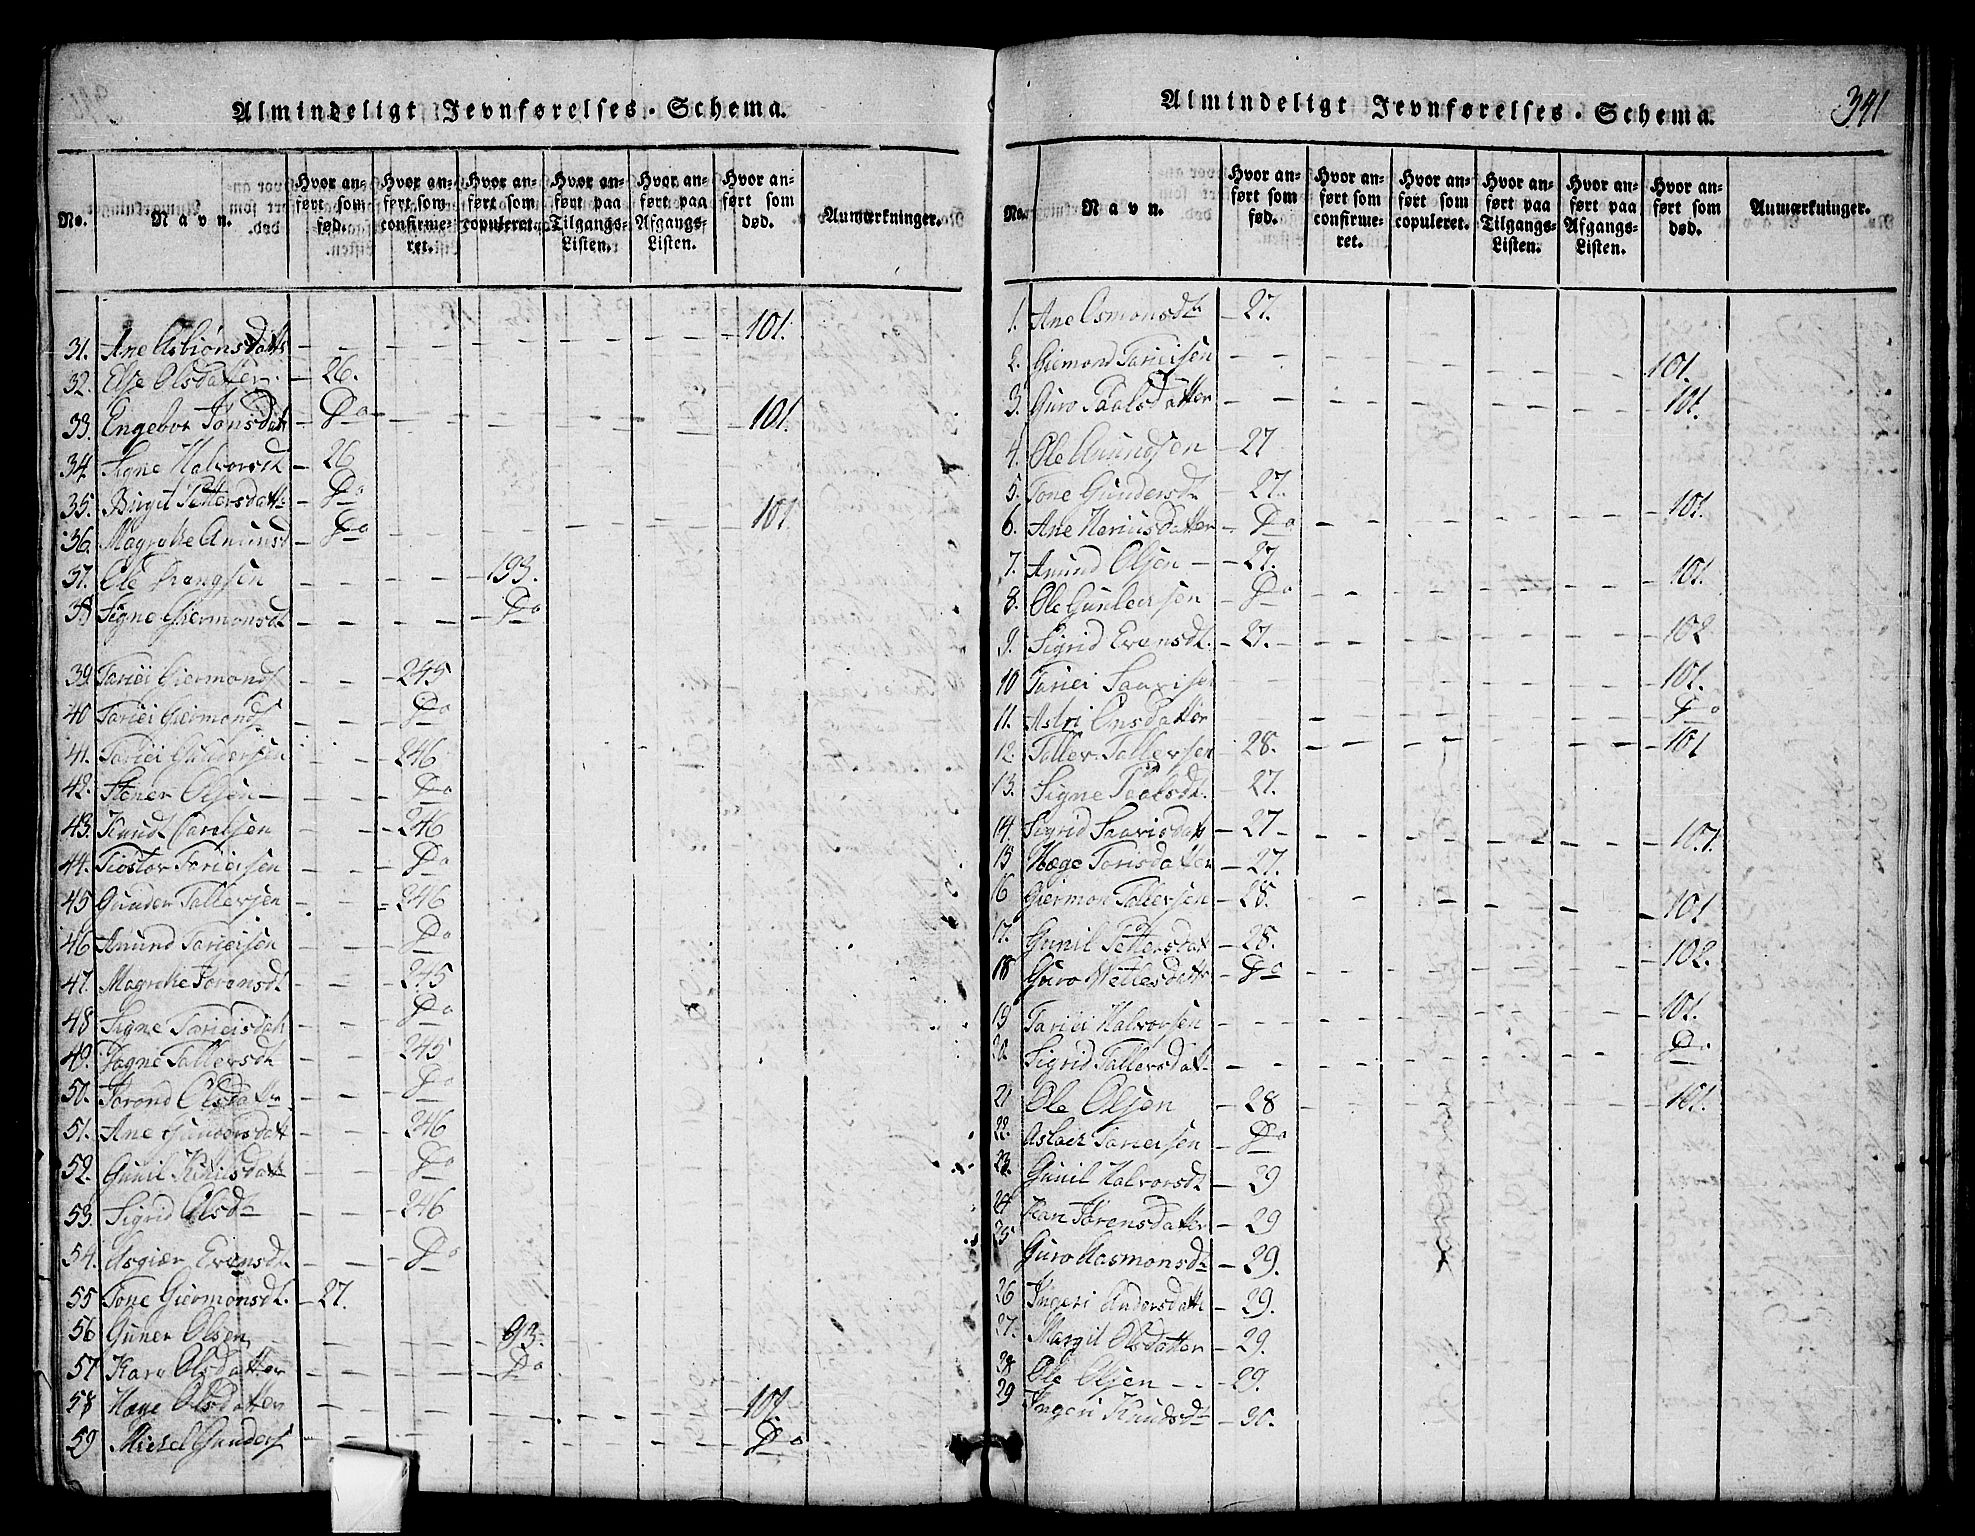 Almindeligt Jevnførelses-Schema.
No. Navn. Hvor anført som fød. Hvor anført som confirmeret. Hvor anført som copuleret. Hvor anført paa Tilgangs-Listen. Hvor anført paa Afgangs-Listen. Hvor anført som død. Anmærkninger.
31. Ane Asbiønsdatt 101.
32. Else Olsdatter 26.
33. Engebor Jonsdatt Do 101.
34. Signe Halvorsdt 26
35. Birgit Pettersdatt Do
36. Magrethe Amunsd Do 101.
37. Ole 193.
38 Signe Giermonsdt Do
39. Tariei Giermonds 245
40 Tariei Giermonds Do
41. Tariei Gundersen 246
42. Stener Olsen Do
43. Knud 246
44. Tiostov Tarieisen Do
45 Gunder Tallersen 246
46 Amund Tarieisen Do
47. Magrethe Jorensdt 245
48 Signe Tarieisdatt Do
49. Tallersdt 245
50. Jorond Olsdatte Do
51. Ane Gundersdatt 246
52. Gunil Knudsdatt Do
53. Sigrid Olsdt 246
54. Evensdt Do
55 Tone Giermonsdt. 27.
56 Guner Olsen 93.
57 Kare Olsdatter Do
58 Hæge Olsdatter 101
59 Michel Gunders Do
Almindeligt Jevnførelses-Schema.
341
No. Navn. Hvor anført som fød. Hvor anført som confirmeret. Hvor anført som copuleret. Hvor anført paa Tilgangs-Listen. Hvor anført paa Afgangs-Listen. Hvor anført som død. Anmærkninger.
1. Ane Osmonsdt 27.
2. Giemond Tarieisen 101.
3. Guro Paalsdatter 101.
4. Ole Amundsen 27
5. Tone Gundersdt 27.
6. Ane datter Do 101.
7. Amund Olsen 27.
8. Ole Gunleicsen Do 101.
9. Sigrid Evensdt. 27. 102
10 Tariei Saavisen 101.
11. Astri Onsdatter Do
12. Taller Tallersen 28. 101
13. Signe Paalsdt. 27.
14. Sigrid Saavisdatt 27 101.
15 Hæge Torisdatter 27.
16 Giermon Tallersen 28. 101
17. Gunil Pettersdatt 28.
18 Guro Wetlesdatt Do 102.
19 Tariei Halvorsen 101.
20. Sigrid Tallersdatt Do
21 Ole Olsen 28 101.
22. Aslaci Tarieisen Do
23. Gunil Halvorsdt 29
24 Kari Jorensdatter 29
25 Guro Aasmonsdt 29.
26 Ingeri Andersdatt 29.
27. Margit Olsdatter 29.
28 Ole Olsen 29.
29 Ingeri Knudsdt 30.